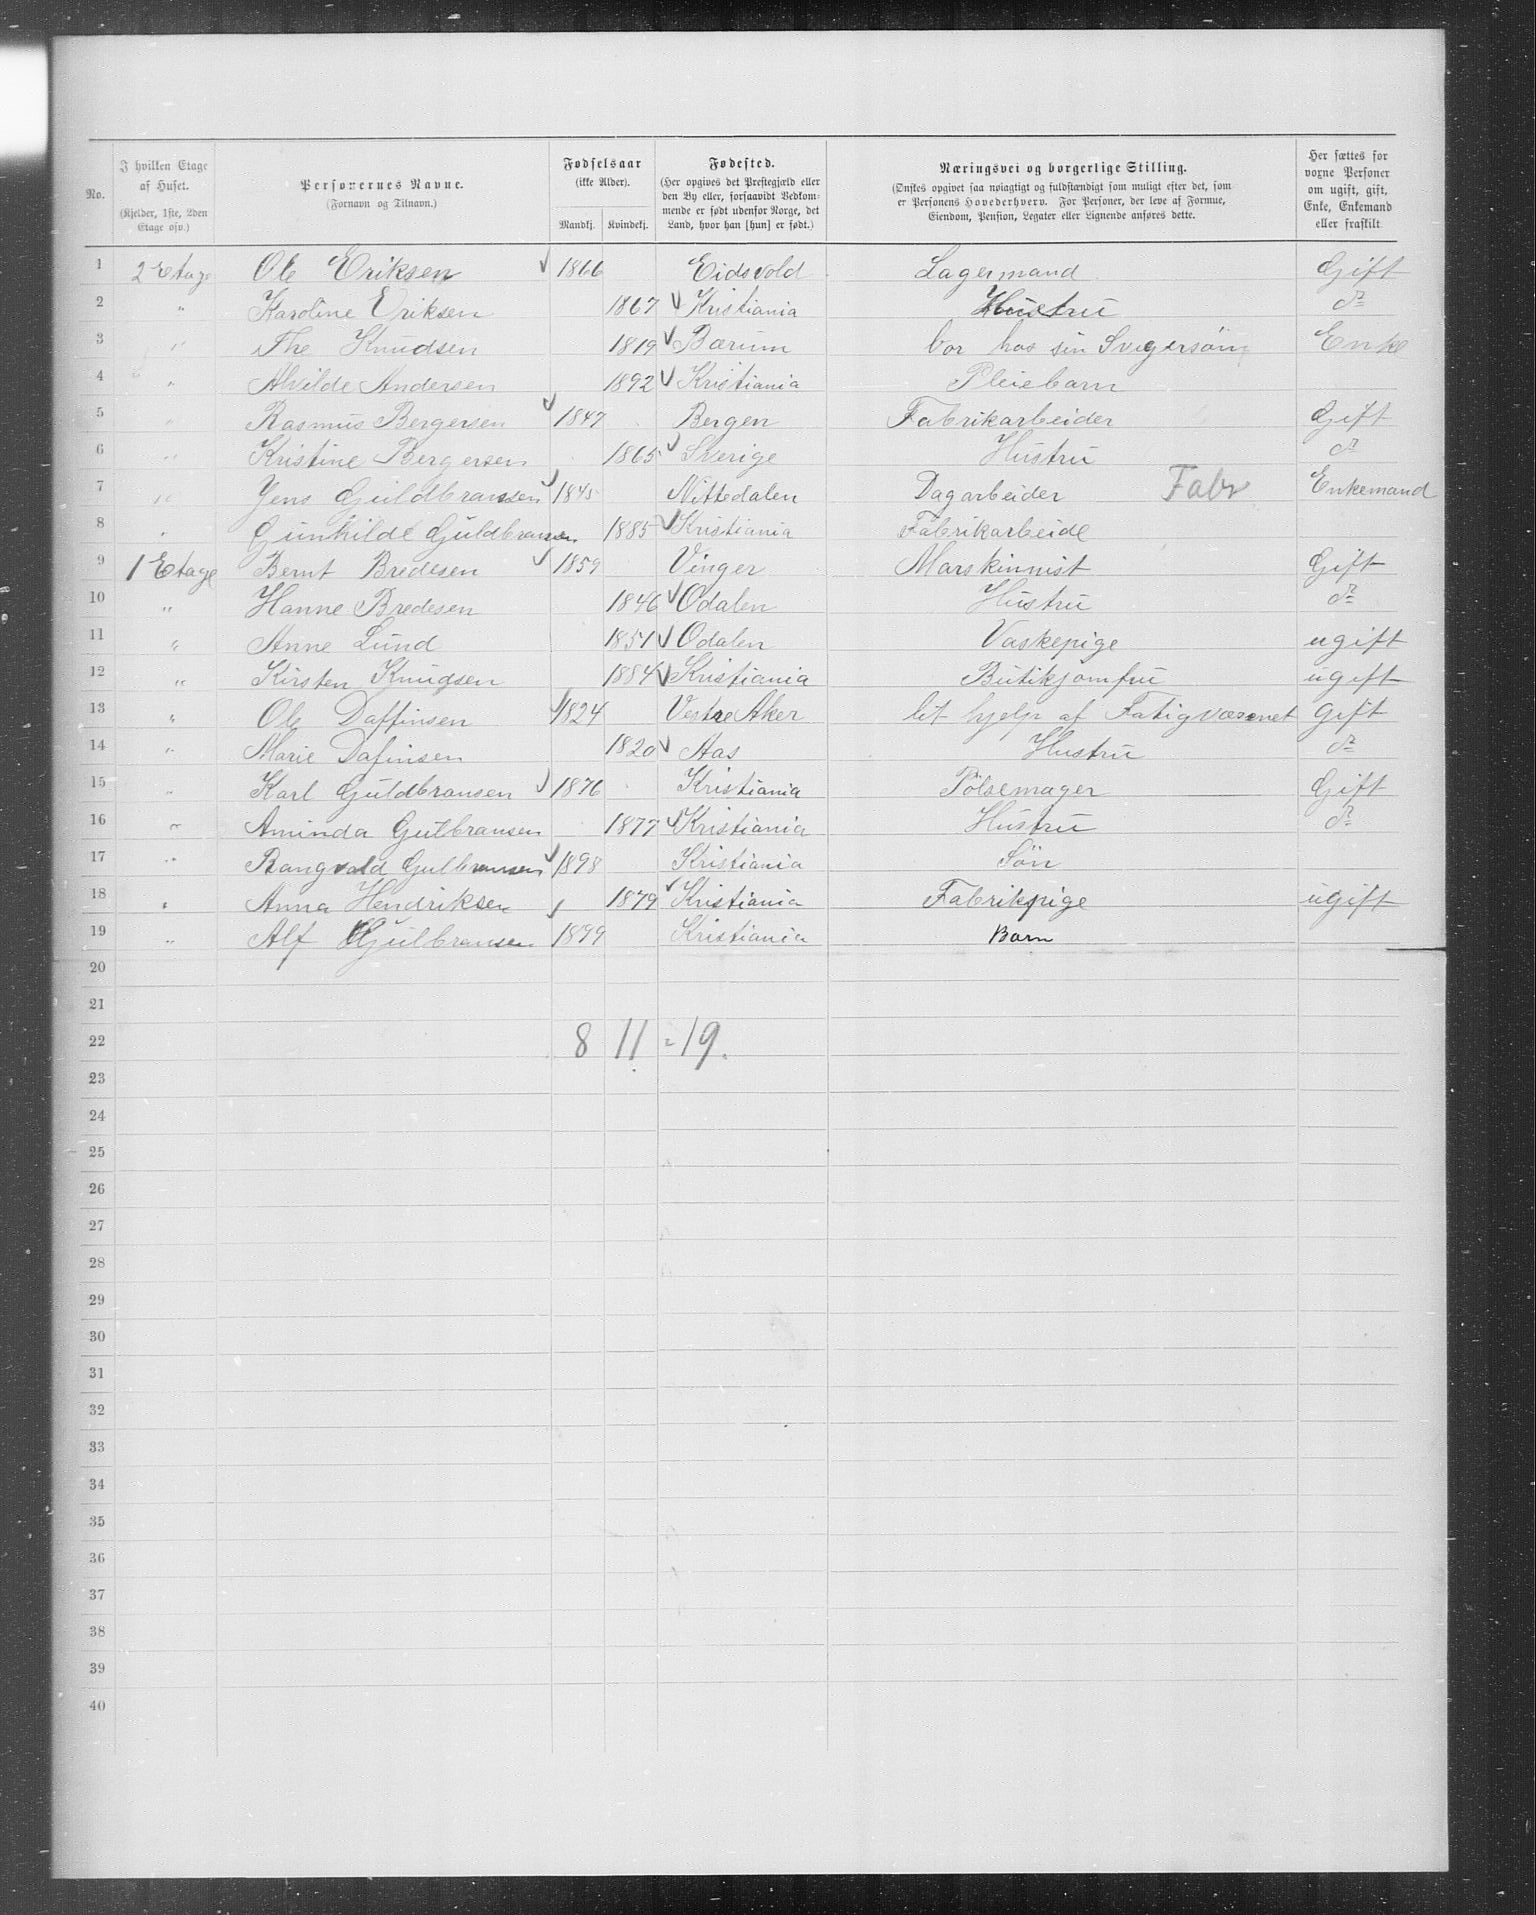 No.
I hvilken Etage af Huset.
(Kjelder, 1ste, 2den Etage osv.)
Personernes Navne.
(Fornavn og Tilnavn.)
Fødselsaar
(ikke Alder).
Mandkj. Kvindekj.
Fødested.
(Her opgives det Prestegjæld eller
den By eller, forsaavidt Vedkom-
mende er født udenfor Norge, det
Land, hvor han [hun] er født.)
Næringsvei og borgerlige Stilling.
(Ønskes opgivet saa nøiagtigt og fuldstændigt som muligt efter det, som
er Personens Hovederhverv. For Personer, der leve af Formue,
Eiendom, Pension, Legater eller Lignende anføres dette.
Her sættes for
voxne Personer
om ugift, gift,
Enke, Enkemand
eller fraskilt
1 2 Etage Ole Eriksen 1866 Eidsvold Lagermand Gift
2 " Karoline Eriksen 1867 Kristiania Hustru do
3 " The Knudsen 1819 Bærum bor hos sin Svigersøn Enke
4 " Alvilde Andersen 1892 Kristiania Pleiebarn
5 " Rasmus Bergersen 1847 Bergen Fabrikarbeider Gift
6 " Kristine Bergersen 1865 Sverige Hustru do
7 " Jens Guldbransen 1845 Nittedalen Dagarbeider Fabr Enkemand
8 " Gunhilde Guldbransen 1885 Kristiania Fabrikarbeide
9 1 Etage Bernt Bredesen 1859 Vinger Marskinnist Gift
10 " Hanne Bredesen 1846 Odalen Hustru do
11 " Anne Lund 1851 Odalen Vaskepige ugift
12 " Kirsten Knudsen 1884 Kristiania Butikjomfru ugift
13 " Ole Daffinsen 1824 Vestre Aker lit hjelp af Fatigvæsenet gift
14 " Marie Dafinsen 1820 Aas Hustru do
15 " Karl Guldbransen 1876 Kristiania Pölsemager Gift
16 " Aminda Gulbransen 1877 Kristiania Hustru do
17 " Rangvald Gulbransen 1898 Kristiania Sön
18 " Anna Hendriksen 1879 Kristiania Fabrikpige ugift
19 " Alf Gulbransen 1899 Kristiania Barn
20
21
22 8 11 = 19.
23
24
25
26
27
28
29
30
31
32
33
34
35
36
37
38
39
40